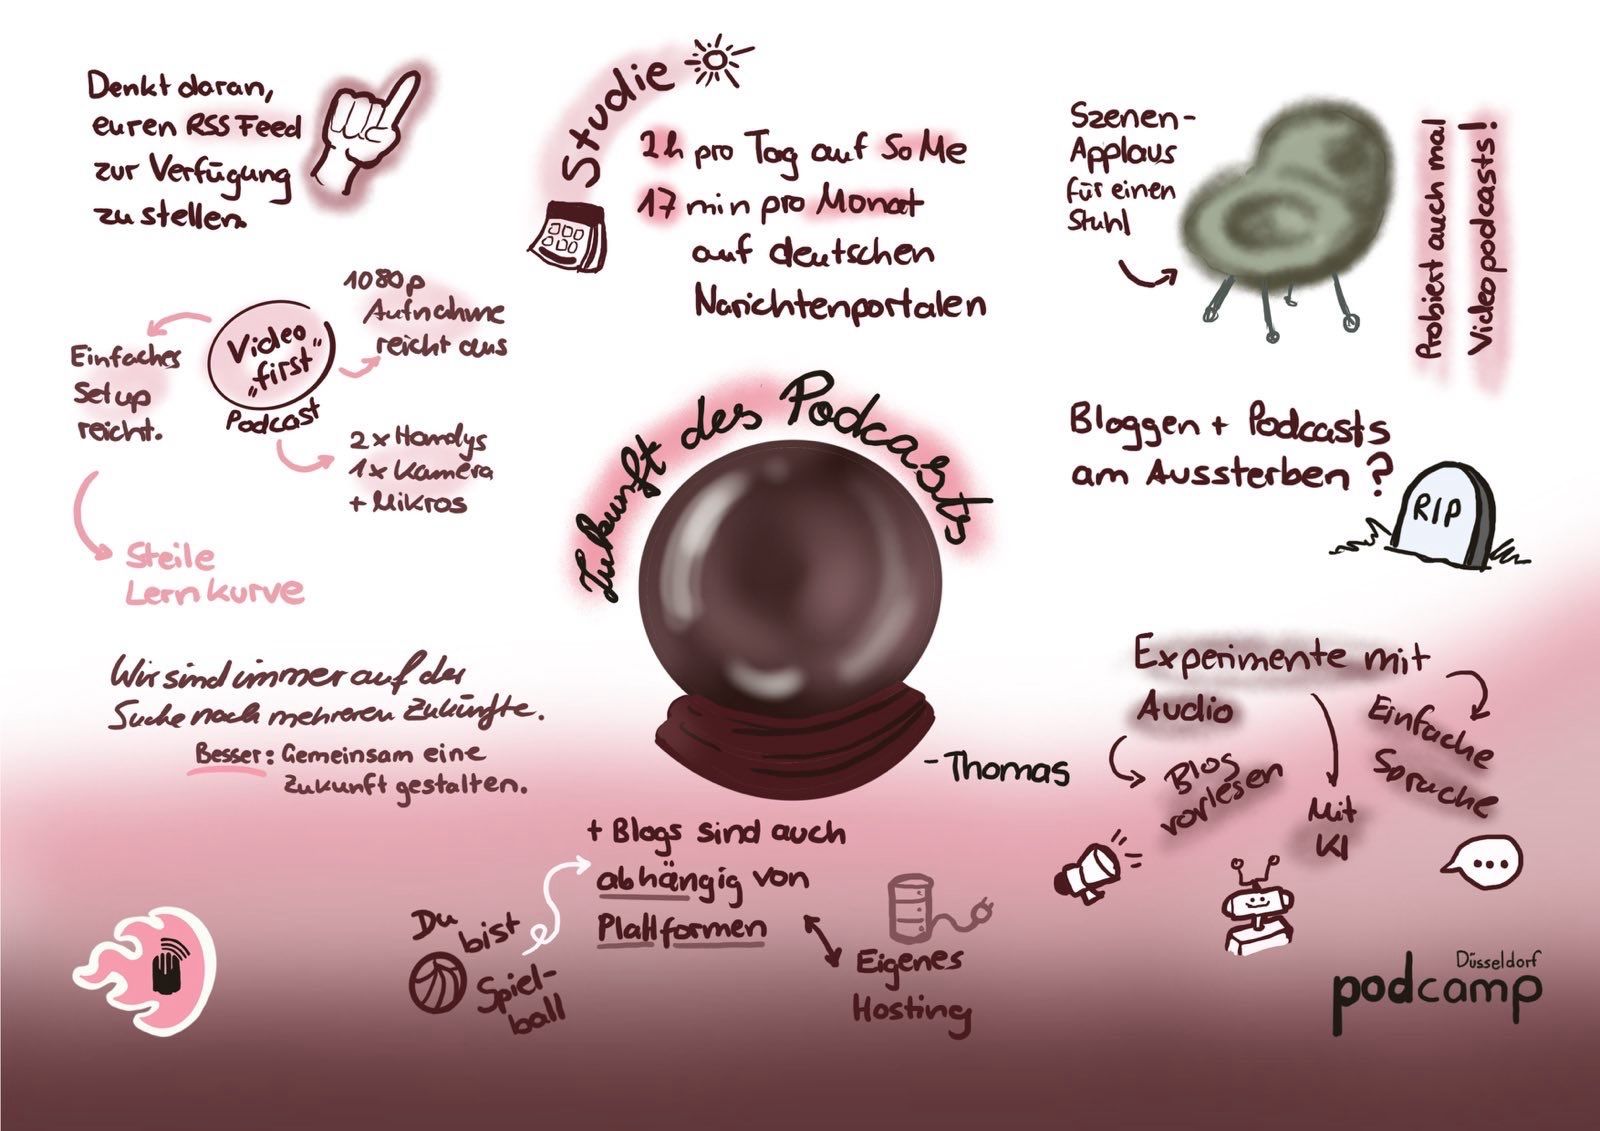 Denkt daran,
euren RSS Feed
zur Verfügung
zu stellen.
Studie
2h pro Tag auf SoMe
17 min pro Monat
auf deutschen
Narichtenportalen
Szenen-
Applaus
für einen
Stuhl
Probiert auch mal
Videopodcasts!
Video
„first"
Podcast
1080p
Aufnahme
reicht aus
Einfaches
Setup
reicht.
2x Handys
1x Kamera
+ Mikros
Steile
Lernkurve
Zukunft des Podcasts
- Thomas
Bloggen + Podcasts
am Aussterben?
RIP
Wir sind immer auf der
Suche nach mehreren Zukünfte.
Besser: Gemeinsam eine
Zukunft gestalten.
Experimente mit
Audio
Blog
vorlesen
Mit
KI
Einfache
Sprache
+ Blogs sind auch
abhängig von
Plattformen
Du
bist
Spiel-
ball
Eigenes
Hosting
Düsseldorf
podcamp